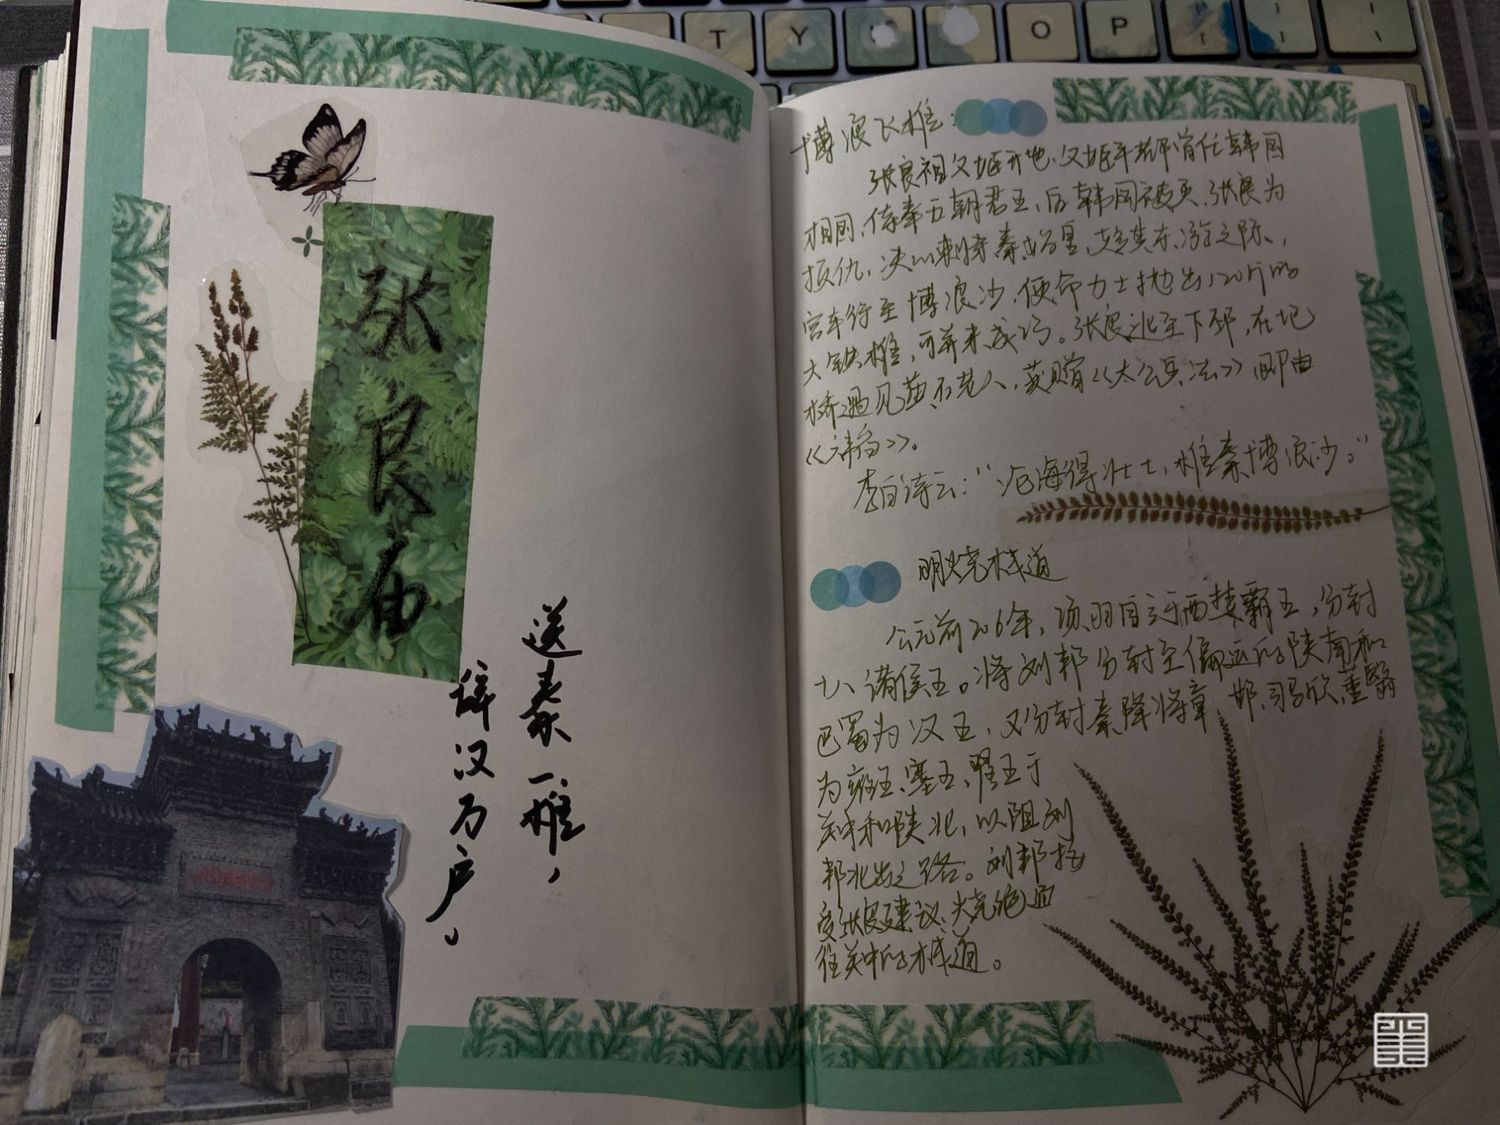 张良庙
送秦一椎，
辞汉万户。
博浪飞椎：
张良祖父姬开地、父姬平都曾任韩国
相国，侍奉五朝君王，后韩国被灭，张良为
报仇，决心刺杀秦始皇，趁其东游之际，
宫车行至博浪沙，使命力士抛出120斤的
大铁椎，可并未成功。张良逃至下邳，在圯
桥遇见黄石老人，获赠《太公兵法》即由
李白诗云：“沧海得壮士，椎秦博浪沙。”
明烧栈道
公元前206年，项羽自立于西楚霸王，分封
十八诸侯王。将刘邦分封至偏远的陕南和
巴蜀为汉王，又分封秦降将章邯、司马欣、董翳
为雍王、塞王、翟王于
关中和陕北，以阻刘
邦北出之路。刘邦接
受张良建议，火烧
往关中的栈道。
T Y O P